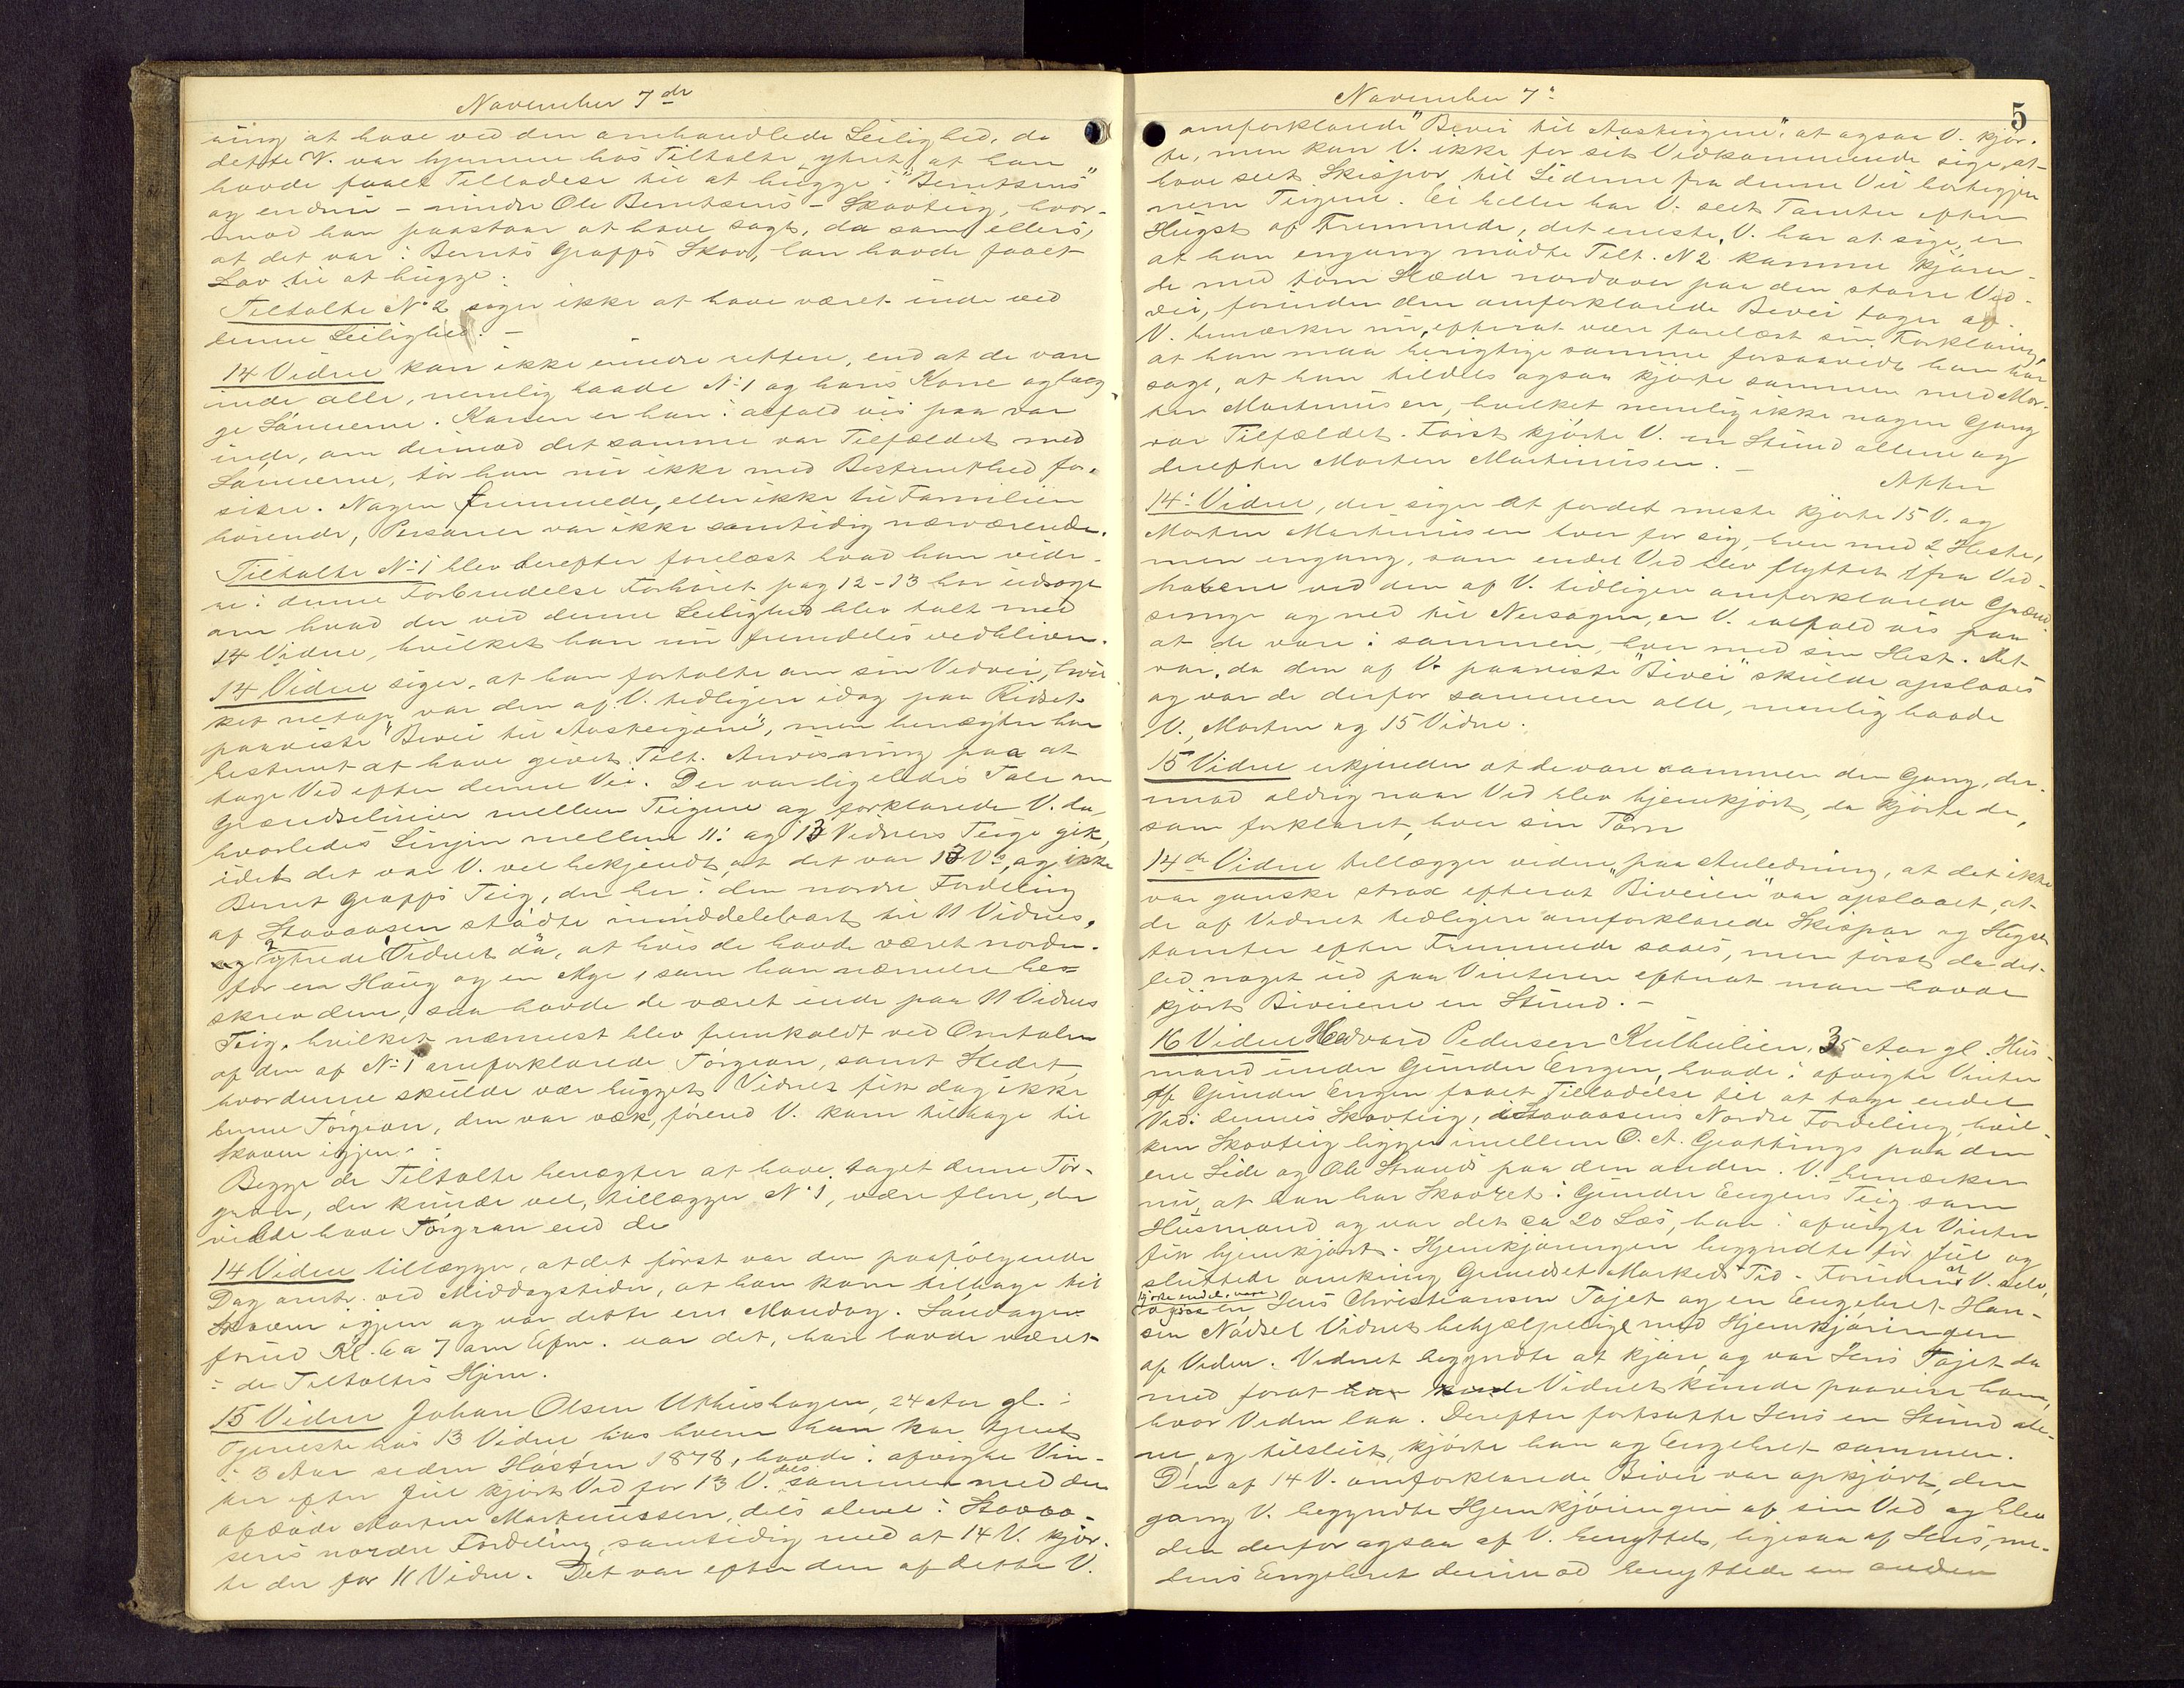 November 7de
ning at have ved den omhandlede Leilighed, da
dette V. var hjemme hos Tiltalte, ytret, at han
havde faaet Tilladese til at hugge i "Berntsens"
og endnu - mindre Ole Berntsens - Skovteig, hvor-
mod han paastaar at have sagt, da som ellers,
at det var i Bernts Graffs Skov, han havde faaet
Lov til at hugge.
Tiltalte No 2 siger ikke at have været inde ved
denne Leilighed. -
14 Vidne kan ikke erindre rettere, end at de vare
inde alle, nemlig baade No 1 og hans Kone og beg-
ge Sønnerne. Konen er han i alfald vis paa var
inde, om derimod det samme var Tilfældet med
Sønnerne, tør han nu ikke med Bestemthed for-
sikre. Nogen fremmede, eller ikke til Familien
hørende, Personer var ikke samtidig nærværende.
Tiltalte No 1 blev derefter forelæst hvad han vide-
re i denne Forbindelse Forhøret pag 12-13 har udsagt
om hvad der ved denne Leilighed blev talt med
14 Vidne, hvilket han nu fremdeles vedbliver.
14 Vidne siger, at han fortalte om sin Vedvei, hvil-
ket netop var den af V. tidligere idag paa Ridset
paaviste "Bivei til Aasteigene", men benægter han
bestemt at have givet Tilt. Anvisning paa at
tage Ved efter denne Vei. Der var ligeledes Tale om
Grændselinier mellem Teigene og forklarede V. da,
hvorledes Linjen mellem 11: og 13 Vidners Teige gik,
idet det var V. vel bekjendt, at det var 13 Vs, og ikke
Bernt Graffs Teig, der her i den nordre Fordeling
af Stavaasen stødte umiddelbart til 11 Vidnes.
og ytrede Vidnet da, at hvis de havde været norden-
for en Haug og en Myr, som han nærmere be-
skrev dem, saa havde de været inde paa 11 Vidnes
Teig, hvilket nærmest blev fremkaldt ved Omtalen
af den af No 1 omforklarede Tørgran, samt Stedet,
hvor denne skulde vær hugget. Vidnet fik dog ikke
denne Tørgran, den var væk, førend V. kom tilbage til
Skoven igjen.
Begge de Tiltalte benægter at have taget denne Tør-
gran, der kunde vel, tillægger No 1, være flere, der
vilde have Tørgran end de
14 Vidne tillægger, at det først var den paafølgende
Dag omtr. ved Middagstider, at han kom tilbage til
Skoven igjen og var dette en Mandag. Søndagen
forud Kl. 6 a 7 om Efm. var det, han havde været
i de Tiltaltes Hjem.
15 Vidne Johan Olsen Uthushagen, 24 Aar gl. i
Tjeneste hos 13 Vidne hos hvem han har tjent
i 3 Aar siden Høsten 1878, havde i afvigte Vin-
ter efter Jul kjørt Ved for 13 V. dels sammen med den
afdøde Morten Martinussen, dels alene i Stavaa-
sens nordre Fordeling samtidig med at 14 V. kjør-
te der for 11 Vidne. Det var efter den af dette V.
November 7:
5
omforklarede "Bivei til Aasteigene", at ogsaa V. kjør-
te, men kan V. ikke for sit Vidkommende sige, at
have seet Skispor til Siderne fra denne Vei bortigjen-
nem Teigene. Ei heller har V. seet Tomter efter
Hugst af Fremmede, det eneste, V. har at sige, er
at han engang mødte Tilt. N 2 komme kjøren-
de med tom Slæde nordover paa den store Ved-
vei, forinden den omforklarede Bivei tager af.
V. bemærker nu, efterat være forelæst sin Forklaring,
at han maa berigtige samme forsaavidt han har
sagt, at han tildels ogsaa kjørte sammen med Mor-
ten Martinusen, hvilket nemlig ikke nogen Gang
var Tilfældet. Først kjørte V. en Stund alene og
derefter Morten Martinusen. -
14: Vidne, der siger at fordet meste kjørte 15 V. og
Morten Martinusen hver for sig, hver med 2 Heste,
men engang, som endel Ved blev flyttet fra Ved-
habene ved den af V. tidligere omforklarede Grænd-
segang og ned til Nersagen, er V. ialfald vis paa
at de vare i sammen, hver med sin Hest. Det
var, da den af V. paaviste "Bivei" skulde opslaaes
og var de derfor sammen alle, nemlig baade
V., Morten og 15 Vidne.
15 Vidne erkjender at de vare sammen den Gang, der-
imod aldrig naar Ved blev hjemkjørt, da kjørte de,
som forklaret, hver sin Tørn
14de Vidne tillægger videre paa Anledning, at det ikke
var ganske strax efterat "Biveien" var opslaaet, at
de af Vidnet tidligere omforklarede Skispor og Hugst-
tomter efter Fremmede saaes, men først da det
led noget ud paa Vinteren efterat man havde
kjørt Biveiene en Stund. -
16 Vidne Hedvard Pedersen Kulhulien, 35 Aar gl. Hus-
mand under Gunder Engen, havde i afvigte Vinter
af Gunder Engen faaet Tilladelse til at tage endel
Ved i dennes Skovteig, i Stavaasens Nordre Fordeling, hvil-
ken Skovteig ligger imellem O. A. Grøttings paa den
ene Side og Ole Strands paa den anden. V. bemærker
nu, at han har Skovret i Gunder Engens Teig som
Husmand og var det ca 20 Læs, han i afvigte Vinter
fik hjemkjørt. Hjemkjøringen begyndte før Jul og
sluttede omkring Grundset Markeds Tid. Foruden at V. selv
kjørte endel, vare
Jens Christiansen Tajet og en Engebret Han-
sen Nødsel Vidnet behjælpelige med Hjemkjøringen
af Veden. Vidnet begyndte at kjøre, og var Jens Tajet da
med forat Vidnet kunde paavise ham,
hvor Veden laa. Derefter fortsatte Jens en Stund ale-
ne og tilslut kjørte han og Engebret sammen.
Den af 14 V. omforklarede Bivei var opkjørt, den
gang V. begyndte Hjemkjøringen af sin Ved og blev
den derfor ogsaa af V. benyttet, ligesaa af Jens, me-
dens Engebret derimod benyttede en anden